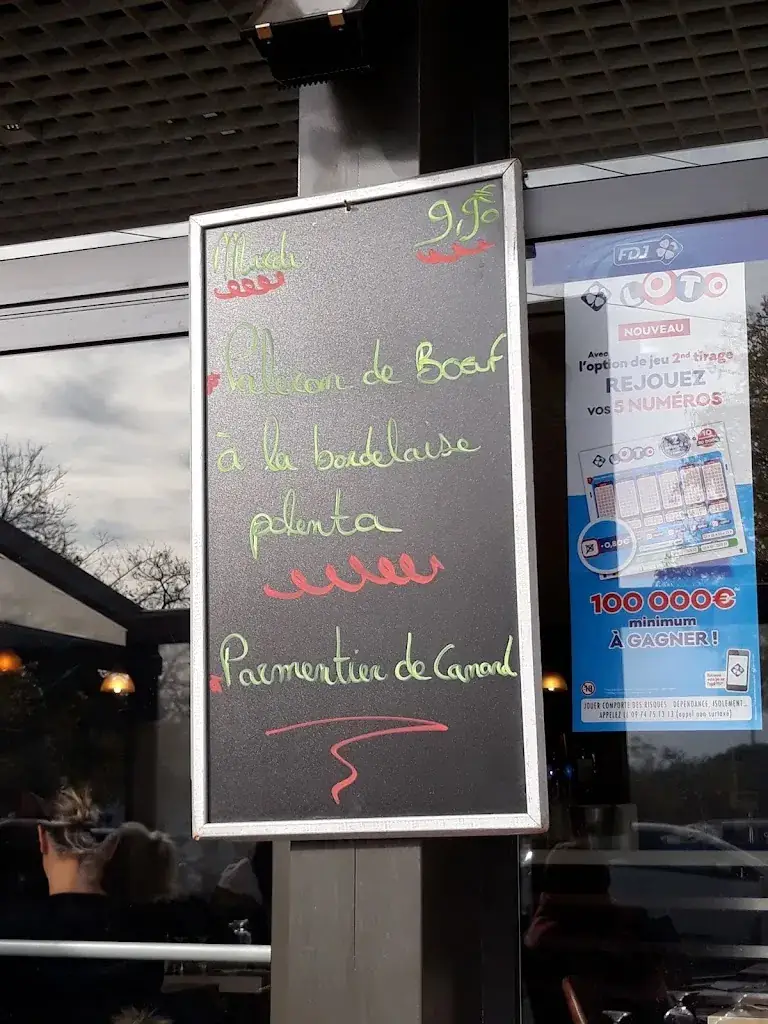 Mardi 9,90€
Paleron de Boeuf
à la bordelaise
polenta
Parmentier de Canard
FDJ
LOTO
NOUVEAU
Avec
l'option de jeu 2nd tirage
REJOUEZ
VOS 5 NUMÉROS
LOTO
+0,80€
100 000€
minimum
À GAGNER !
JOUER COMPORTE DES RISQUES : DÉPENDANCE, ISOLEMENT...
APPELEZ LE 09 74 75 13 13 (appel non surtaxé)